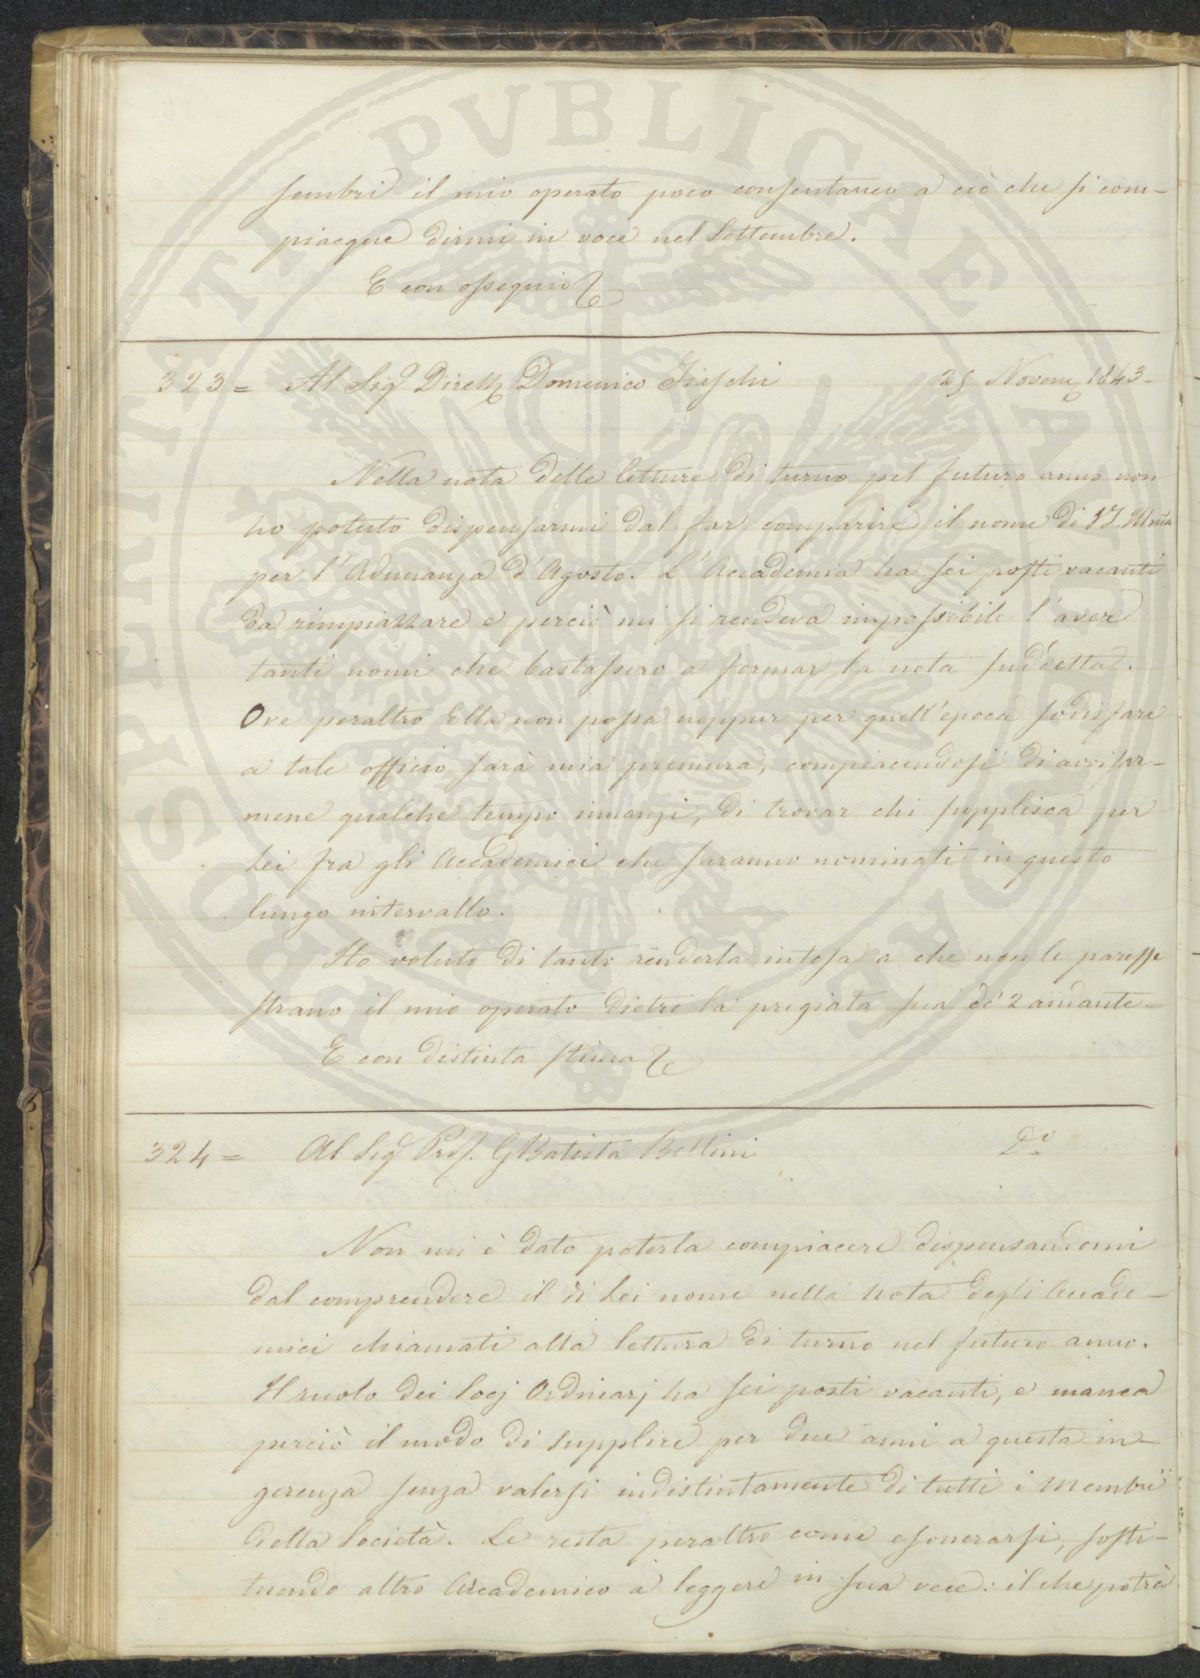 sembri il mio operato poco consentaneo a ciò che si com-
piacque dirmi in voce nel Settembre.
E con ossequio
323 = Al Sigr Dirett Domenico Fiaschi 25 Novem 1843-
Nella nota delle letture di turno pel futuro anno non
ho potuto dispensarmi dal far comparire il nome di
per l'Adunanza d'Agosto. L'Accademia ha sei posti vacanti
da rimpiazzare e perciò mi si rendeva impossibile l'aver
tanti nomi che bastassero a formar la nota suddetta.
Ove peraltro Ella non possa neppur per quell'epoca sodisfare
a tale officio, sarà mia premura, compiacendosi di avvisar-
mene qualche tempo innanzi, di trovar chi supplisca per
Lei fra gli Accademici che saranno nominati in questo
lungo intervallo.
Ho voluto di tanto renderla intesa a che non le paresse
strano il mio operato dietro la pregiata sua de' 2 andante.
E con distinta stima
324 = Al Sigr Prof. GBatista Bellini Do.
Non mi è dato poterla compiacere dispensandomi
dal comprendere il di Lei nome nella Nota degli Accade-
mici chiamati alla lettura di turno nel futuro anno.
Il ruolo dei Socj Ordinarj ha sei posti vacanti, e manca
perciò il modo di supplire per due anni a questa in-
gerenza senza valersi indistintamente di tutti i Membri
della Società. Le resta peraltro come esonerarsi, sosti-
tuendo altro Accademico a leggere in sua vece: il che potrà
PVBLICAE